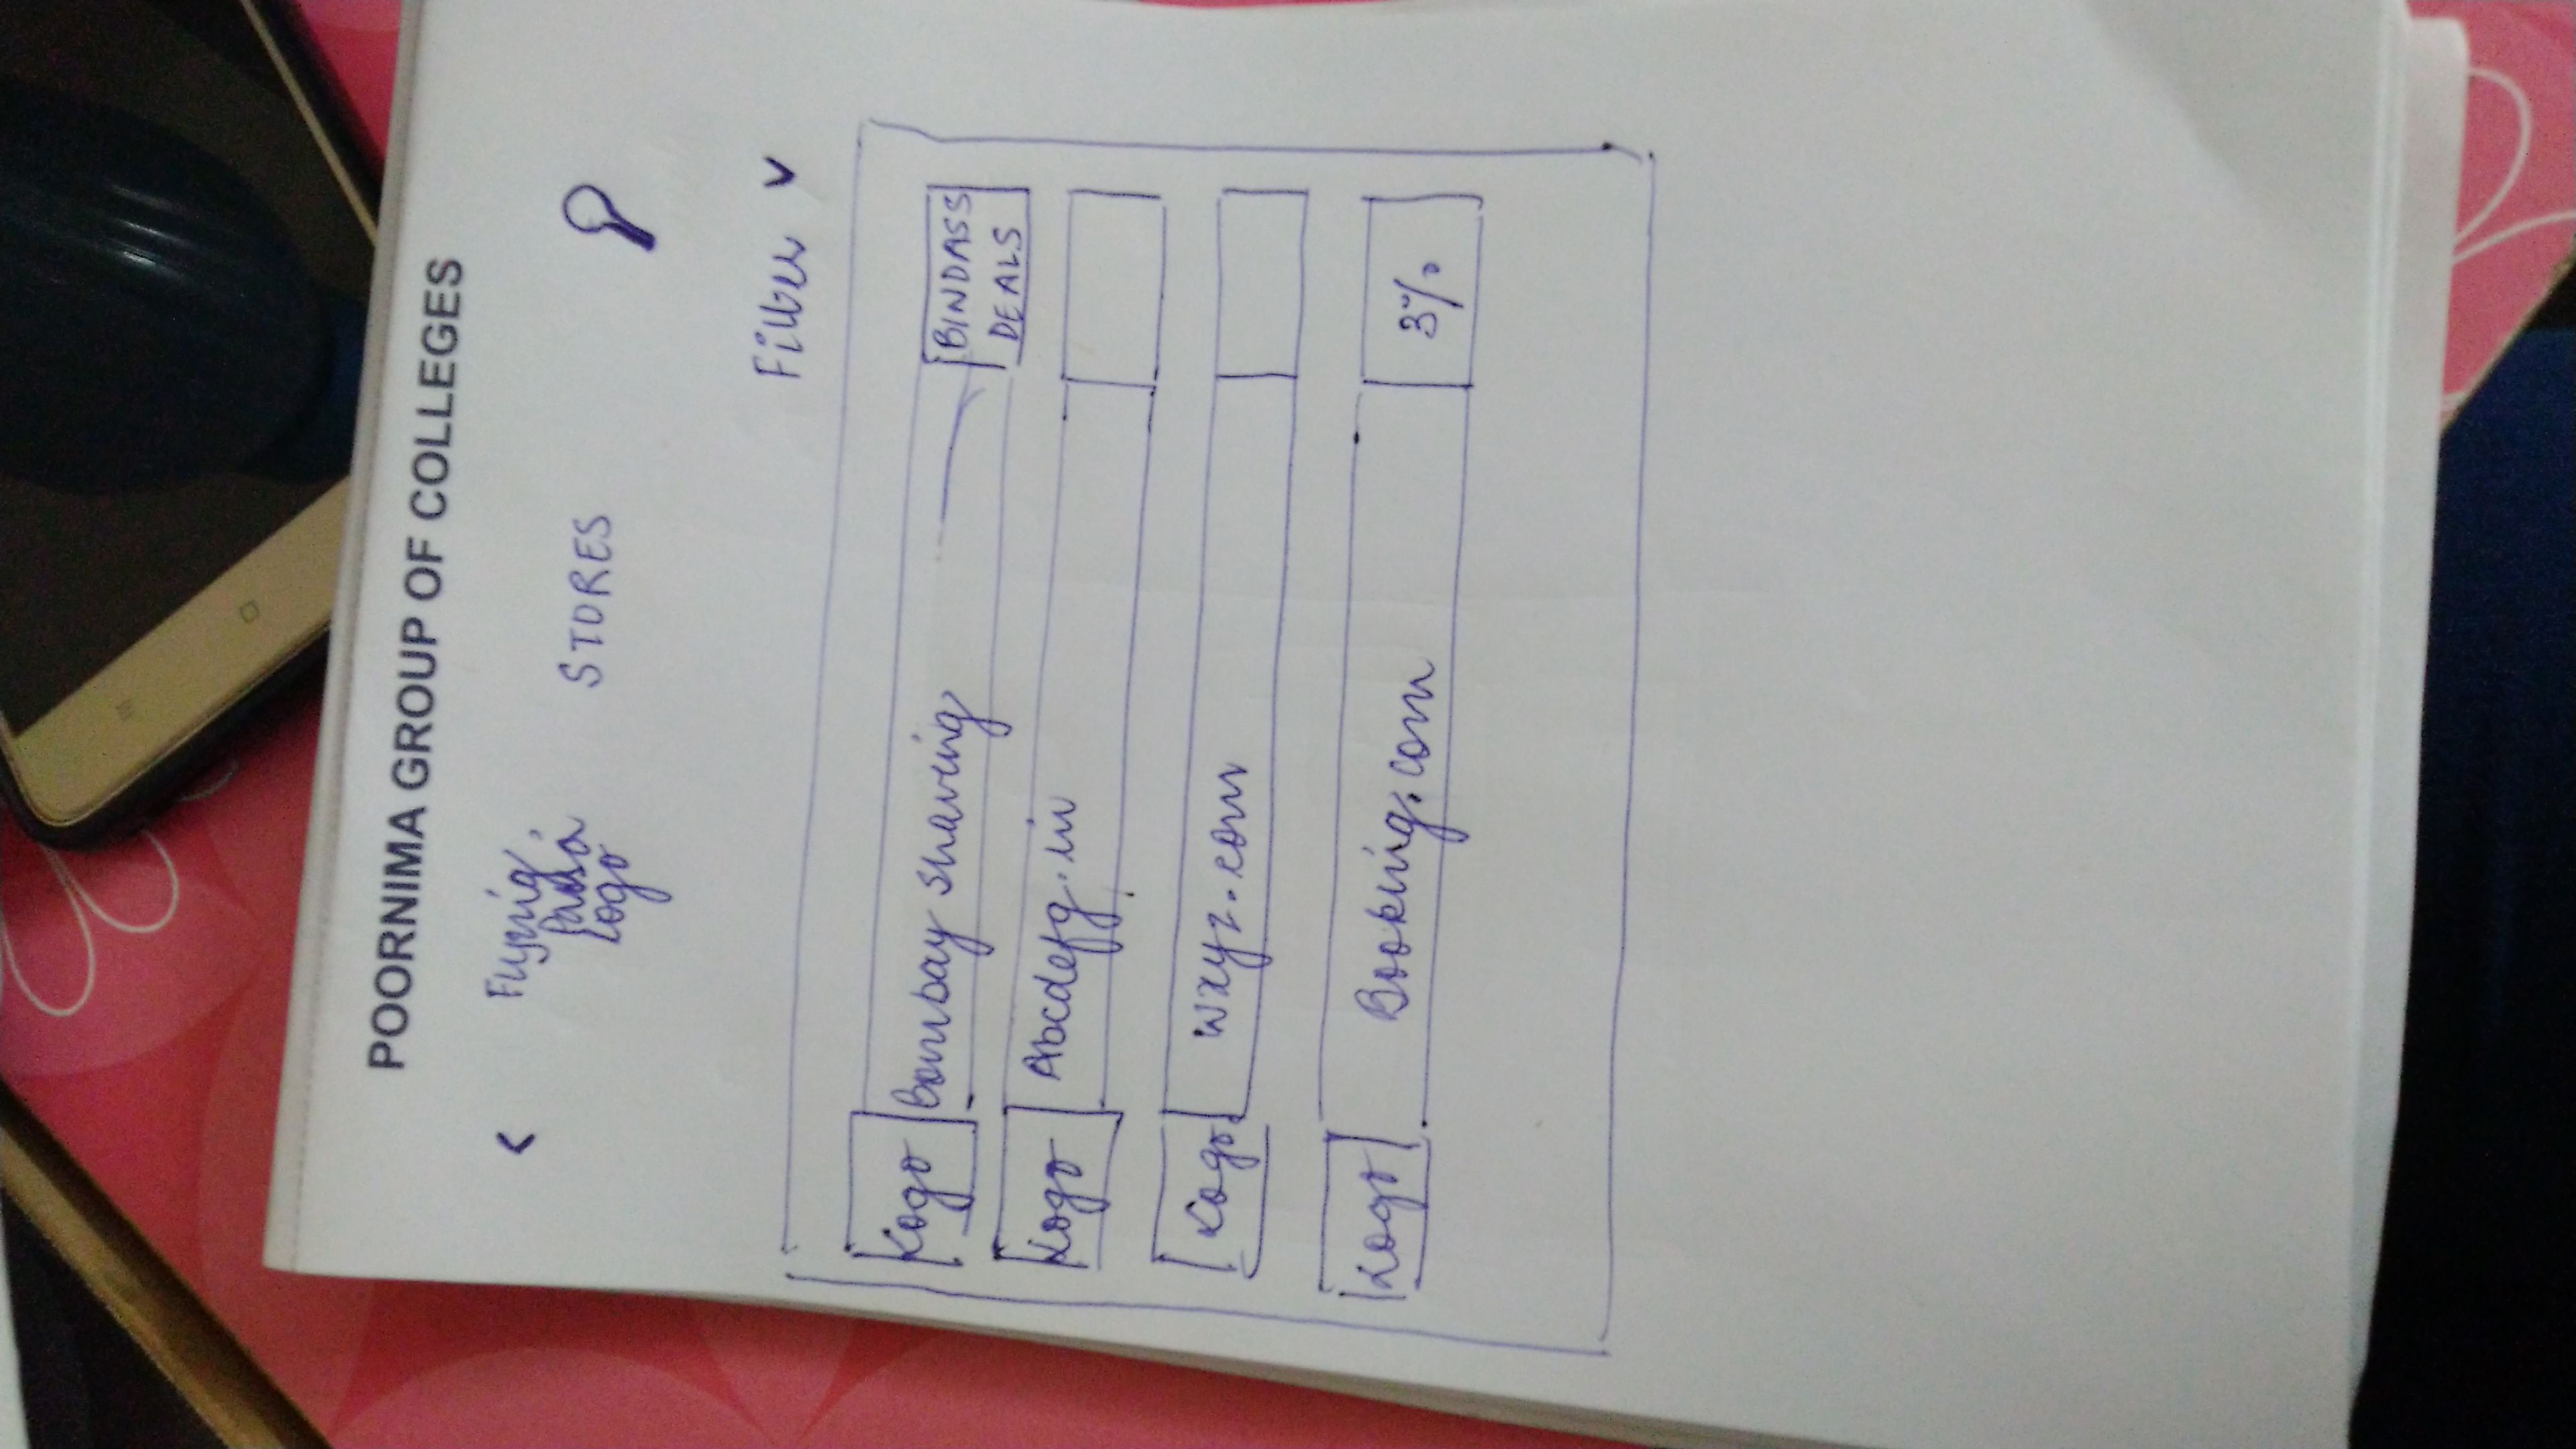 POORNIMA GROUP OF COLLEGES
<
Flying
Paisa
Logo
STORES
Filter v
Logo Bombay shaving BINDASS
DEALS
Logo Abcdefg.in
Logo wxyz.com
Logo Booking.com 3%